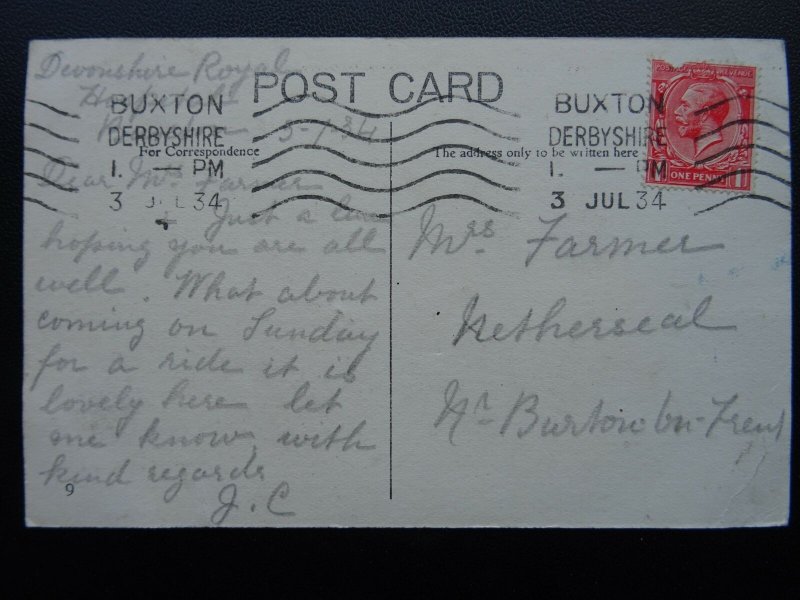 Devonshire Royal
Hospital
Buxton 3-7-34
POST CARD
BUXTON
DERBYSHIRE
1. — PM
3 JUL 34
BUXTON
DERBYSHIRE
1. — PM
3 JUL 34
POSTAGE REVENUE
ONE PENNY
For Correspondence
The address only to be written here
Dear Mrs Farmer
Just a line
hoping you are all
well. What about
coming on Sunday
for a ride it is
lovely here let
me know, with
kind regards
J. C
9
Mrs Farmer
Netherseal
Nr Burton-on-Trent